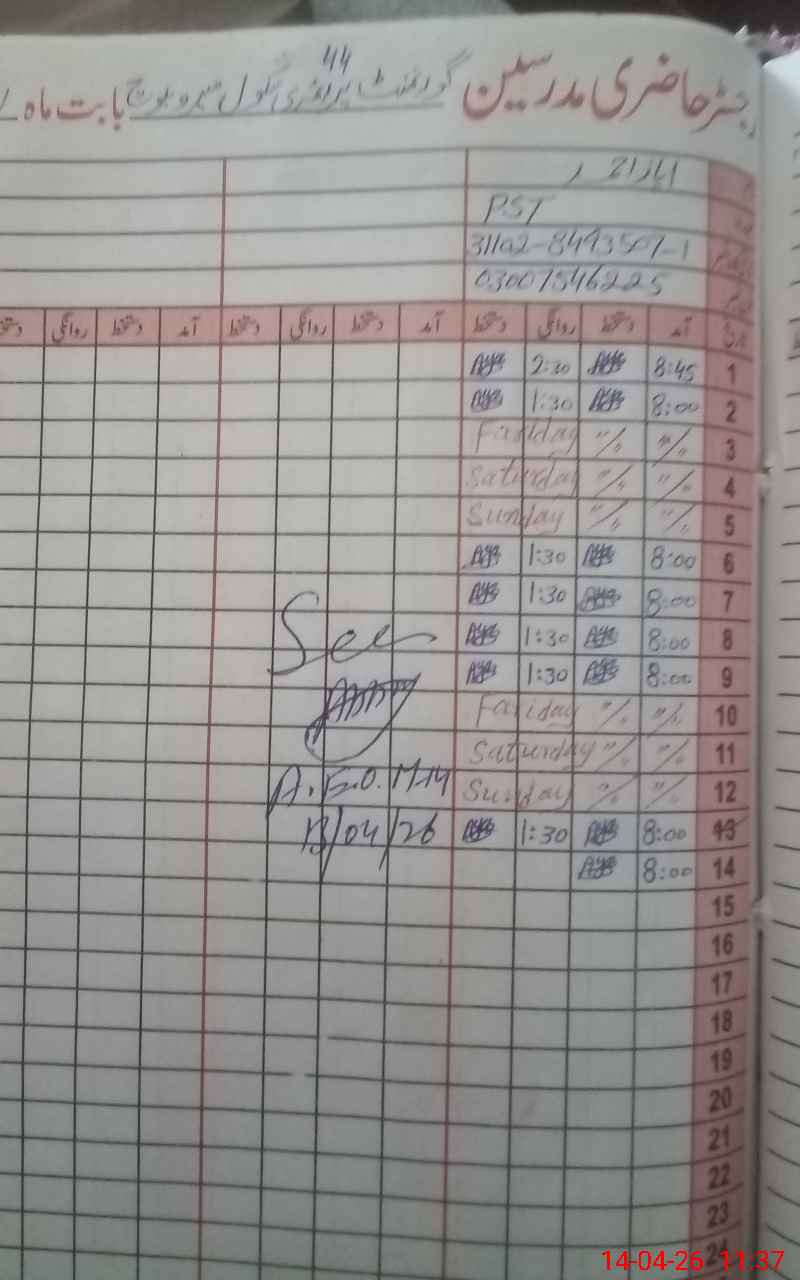 رجسٹر حاضری مدرسین گورنمنٹ پرائمری سکول بابت ماہ
44
PST
31102-8493507-1
03007546225
آمد دستخط روانگی دستخط آمد دستخط روانگی دستخط آمد دستخط روانگی
1 8:45 2:30
2 8:00 1:30
3 "/. "/. Fariday
4 "/. "/. Saturday
5 "/. "/. Sunday
6 8:00 1:30
7 8:00 1:30
8 8:00 1:30
9 8:00 1:30
10 "/. "/. Fariday
11 "/. "/. Saturday
12 "/. "/. Sunday
13 8:00 1:30
14 8:00
15
16
17
18
19
20
21
22
23
24
See
A.E.O.
13/04/26
14-04-26 11:37